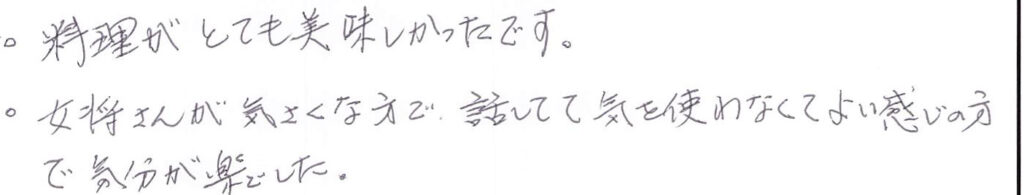 。料理がとても美味しかったです。
。女将さんが気さくな方で、話してて気を使わなくてよい感じの方
で気分が楽でした。